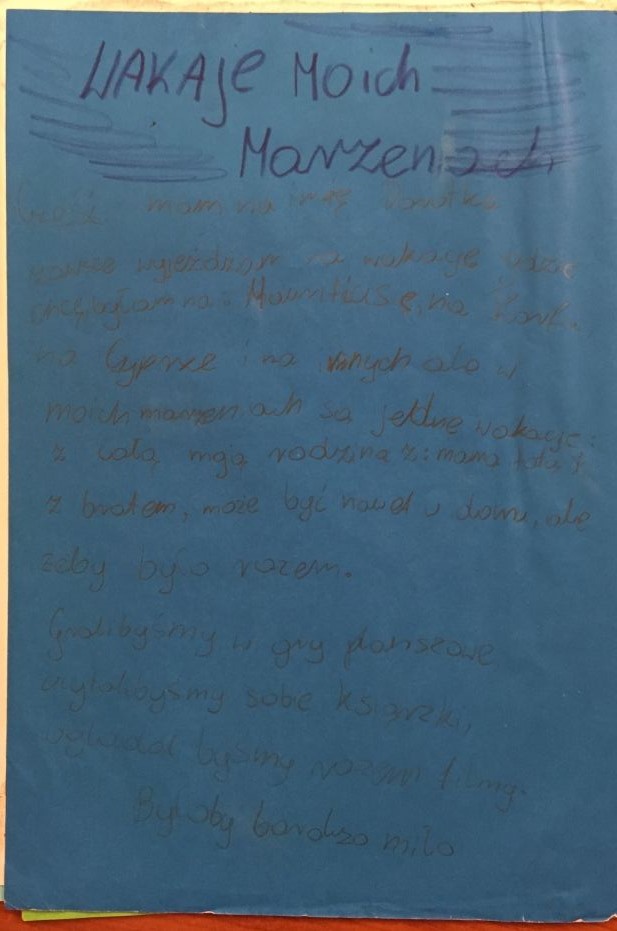 WAKAJE MOICH
MARZENIACH
Cześć mam na imię
zawsze wyjeżdżam na wakacje
chcę byłam na: Mauritiusie, na
na Cyprze i na innych ale w
moich marzeniach są jedne wakacje:
z całą moją rodziną z: mamą tatą i
z bratem, może być nawet w domu, ale
żeby było razem.
Gralibyśmy w gry planszowe
czytalibyśmy sobie książki,
oglądal byśmy razem filmy.
Byłoby bardzo miło